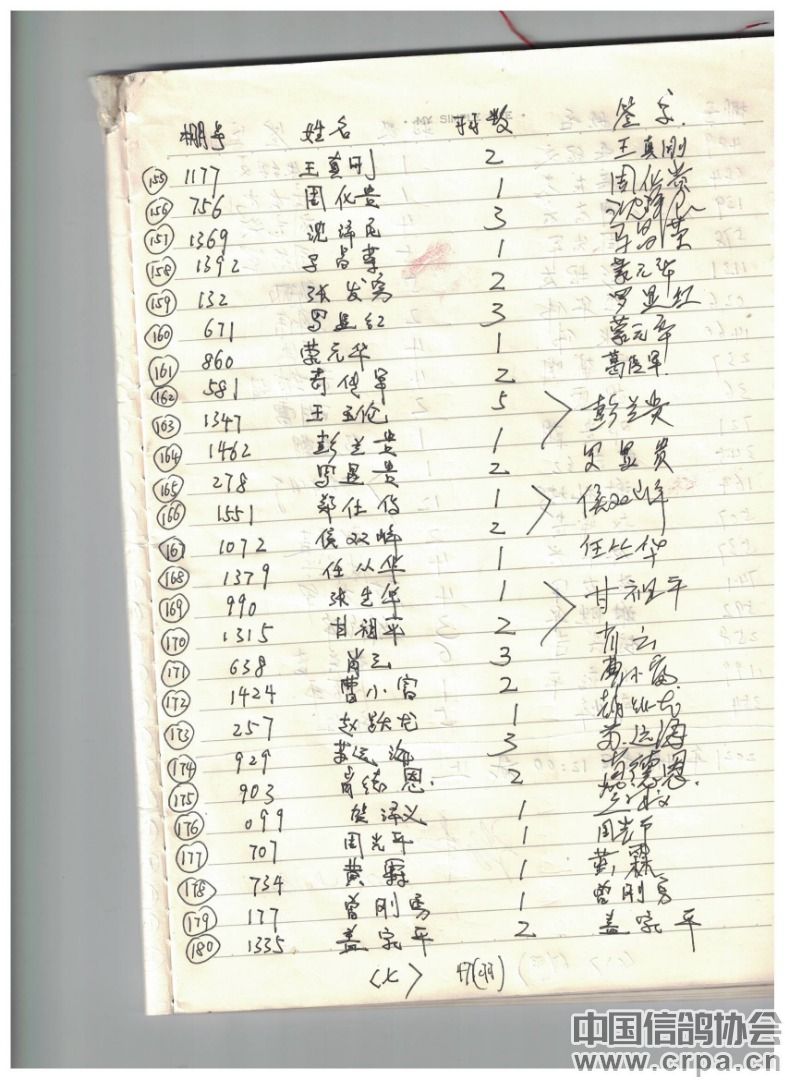 棚号 姓名 羽数 签字
155 1177 王真刚 2 王真刚
156 756 周化贵 1 周化贵
157 1369 沈绵 3
158 1392 昌 1
159 132 张发 2 蒙元华
160 671 罗显红 3 罗显红
161 860 蒙元华 1 蒙元华
162 581 2 葛 军
163 1347 王玉伦 5
164 1462 彭兰贵 1 彭兰贵
165 278 罗显贵 2 罗显贵
166 1551 郑仕 1
167 1072 侯双峰 2 侯双峰
168 1379 任从华 1 任丛华
169 990 张生华 1
170 1315 甘祖平 2 甘祖平
171 638 肖云 3 肖云
172 1424 曹小富 2 曹小富
173 257 赵跃龙 1
174 929 苏远海 3 苏远海
175 903 肖德恩 2 肖德恩
176 099 贺泽义 1
177 707 周光平 1 周光平
178 734 黄霖 1 黄霖
179 177 曾刚勇 1 曾刚勇
180 1335 盖家平 2 盖家平
〈七〉 47(羽)
中国信鸽协会
www.crpa.cn